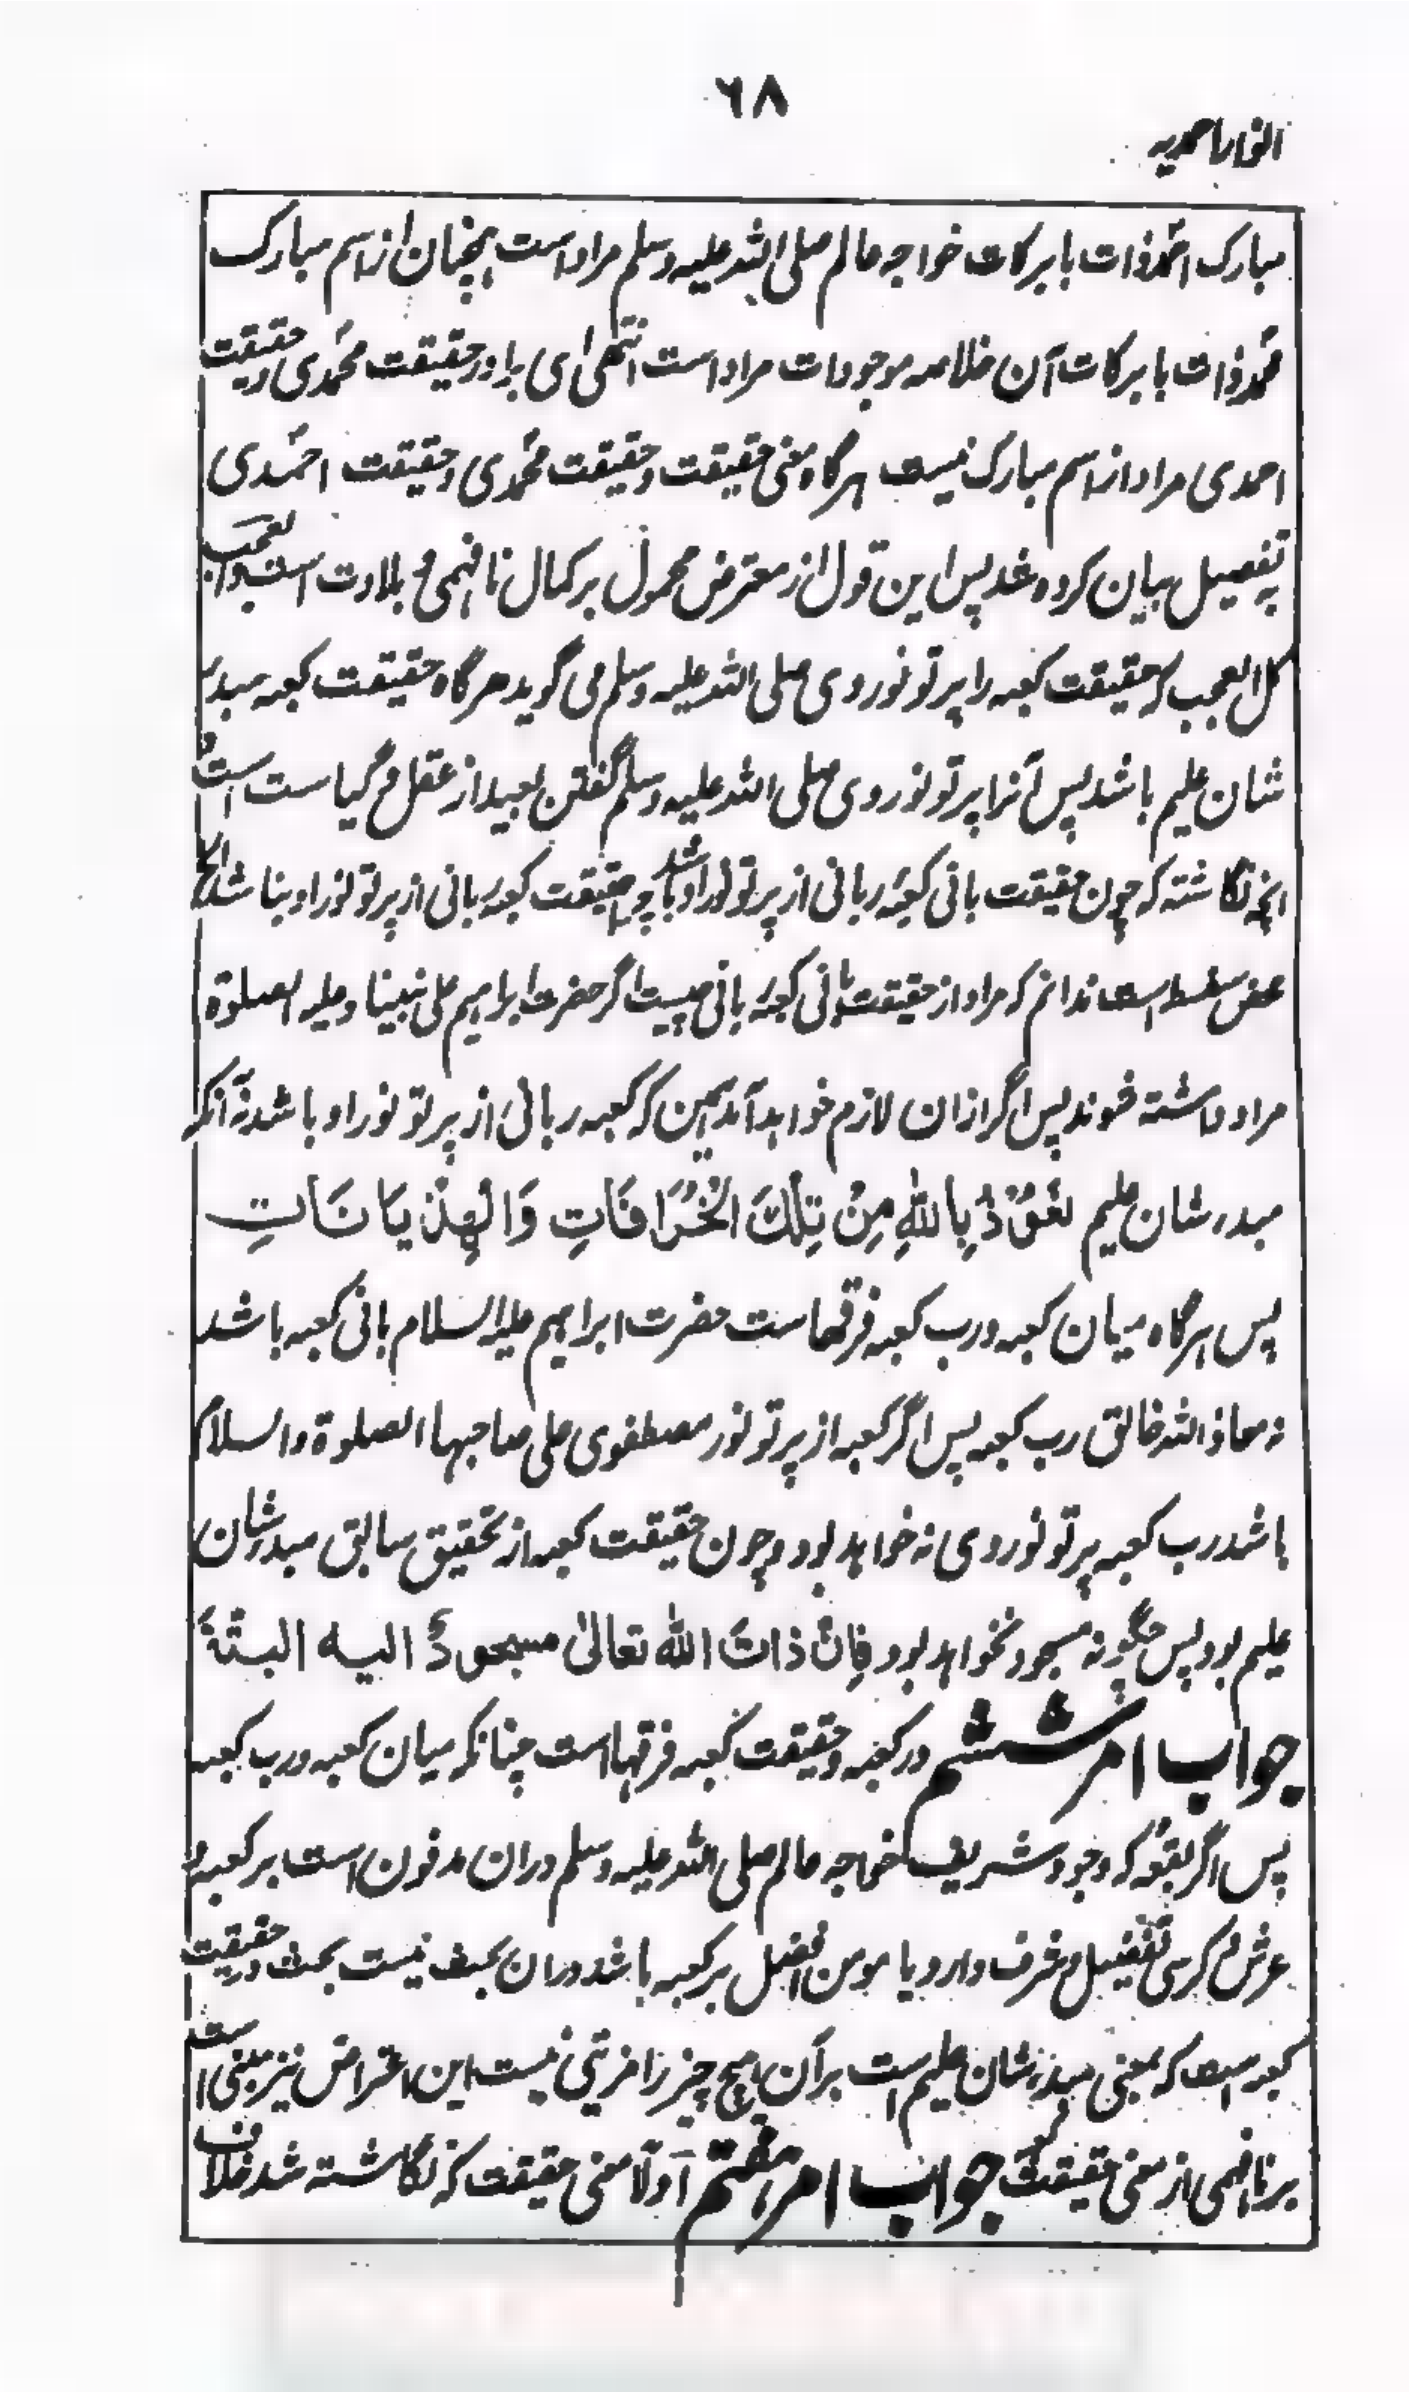 ٦٨
انوار احمدیه
مبارک احمد ذات بابرکات خواجه عالم صلی الله علیه وسلم مراد است همچنان از اسم مبارک
محمد ذات بابرکات آن خلاصه موجودات مراد است انتهی ای برادر حقیقت محمدی و حقیقت
احمدی مراد از اسم مبارک نیست هرگاه معنی حقیقت و حقیقت محمدی و حقیقت احمدی
به تفصیل بیان کرده شد پس این قول از معترض محمول بر کمال نافهمی و بلادت است و العجب
کل العجب که حقیقت کعبه را پرتو نور وی صلی الله علیه وسلم می گوید هرگاه حقیقت کعبه مبدء
شان علیم باشد پس آنرا پرتو نور وی صلی الله علیه وسلم گفتن بعید از عقل و کیاست است و
انچه نگاشته که چون حقیقت بانی کعبۂ ربانی از پرتو نور او باشد چه حقیقت کعبۂ ربانی از پرتو نور او بنا شد الخ
محض سفسطه است ندانم که مراد از حقیقت بانی کعبۂ ربانی چیست اگر حضرت ابراهیم علی نبینا و علیه الصلوة
مراد داشته شوند پس اگر ازان لازم خواهد آمد همین که کعبه ربانی از پرتو نور او باشد نه آنکه
مبدء شان علیم نَعُوْذُ بِاللهِ مِنْ تِلْكَ الْخُرَافَاتِ وَالْهِذْيَانَاتِ
پس هرگاه میان کعبه و رب کعبه فرقهاست حضرت ابراهیم علیه السلام بانی کعبه باشد
نه معاذ الله خالق رب کعبه پس اگر کعبه از پرتو نور مصطفوی علی صاحبها الصلوة والسلام
باشد رب کعبه پرتو نور وی نه خواهد بود و چون حقیقت کعبه از تحقیق سابق مبدء شان
علیم بود پس چگونه مسجود نخواهد بود فِانّ ذاتَ الله تعالیٰ مسجودٌ الیه البتّةَ
جواب امر ششم در کعبه و حقیقت کعبه فرقها است چنانکه میان کعبه و رب کعبه
پس اگر بقعه که وجود شریف خواجه عالم صلی الله علیه وسلم دران مدفون است بر کعبه و
عرش و کرسی تفضیل و شرف دارد یا مومن افضل بر کعبه باشد دران بحث نیست بحث در حقیقت
کعبه است که بمعنی مبدء شان علیم است بر آن هیچ چیز را مزیتی نیست این اعتراض نیز مبنی است
بر نافهمی از معنی حقیقت کعبه جواب امر هفتم اولاً معنی حقیقت که نگاشته شد خلاف